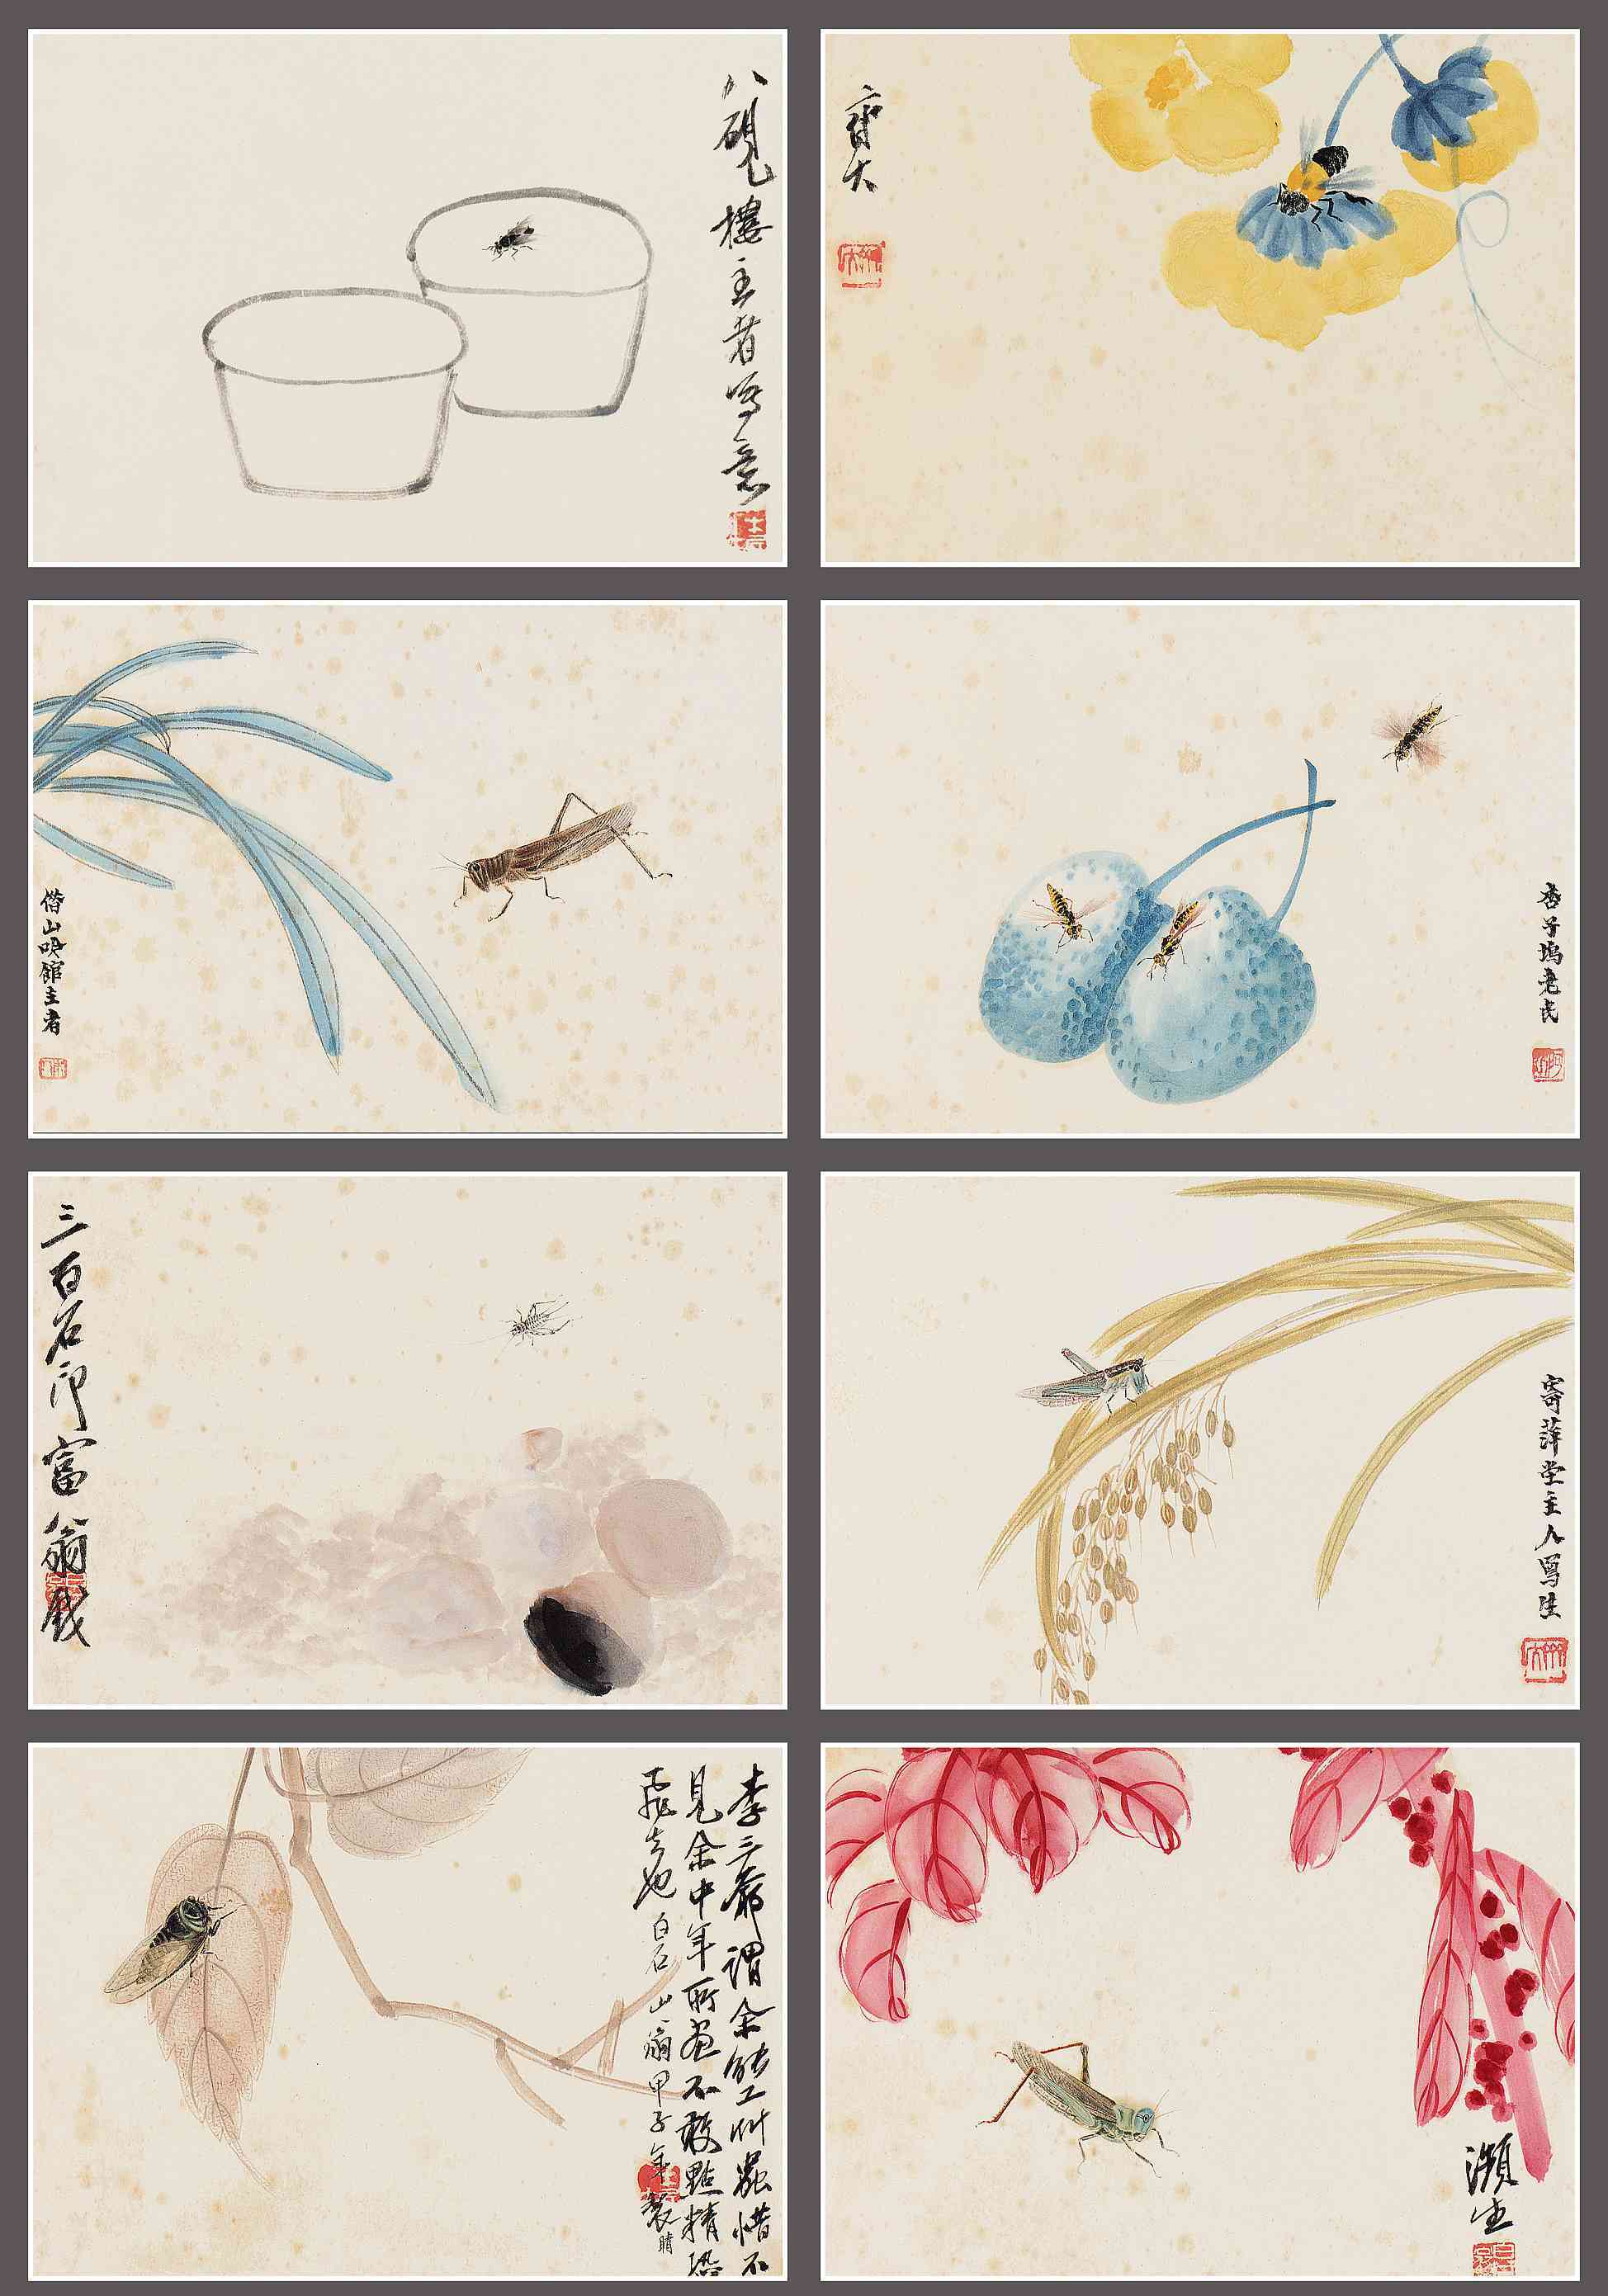 八硯樓主者寫意
齊大
借山吟館主者
杏子塢老民
三百石印富翁戲
寄萍堂主人寫生
李三爺謂余能工艸蟲惜不
見余中年所畫不敢點精恐
飛去也 白石山翁甲子年製
睛
瀕生